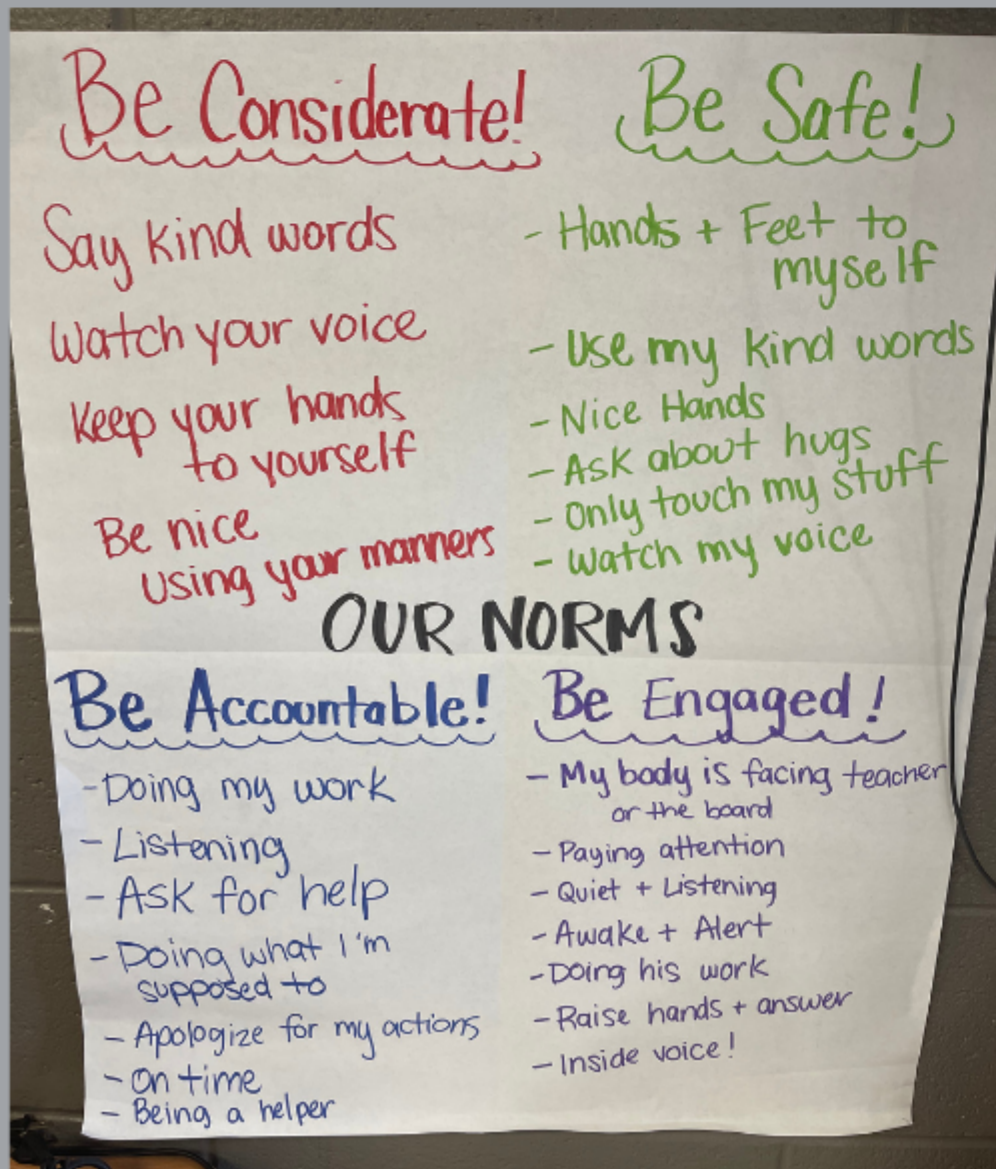 Be Considerate!
Say kind words
Watch your voice
Keep your hands
to yourself
Be nice
using your manners
Be Safe!
- Hands + Feet to
myself
- Use my kind words
- Nice Hands
- Ask about hugs
- Only touch my stuff
- Watch my voice
OUR NORMS
Be Accountable!
- Doing my work
- Listening
- Ask for help
- Doing what I'm
supposed to
- Apologize for my actions
- On time
- Being a helper
Be Engaged!
- My body is facing teacher
or the board
- Paying attention
- Quiet + Listening
- Awake + Alert
- Doing his work
- Raise hands + answer
- Inside voice!